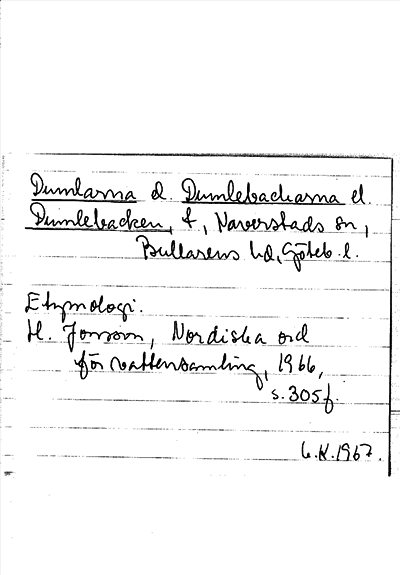 Dumlarna el. Dumlebackarna el.
Dumlebacken, t, Naverstads sn,
Bullarens hd, Göteb. l.
Etymologi.
H. Jonsson, Nordiska ord
för vattensamling, 1966,
s. 305 f.
L.K. 1967.